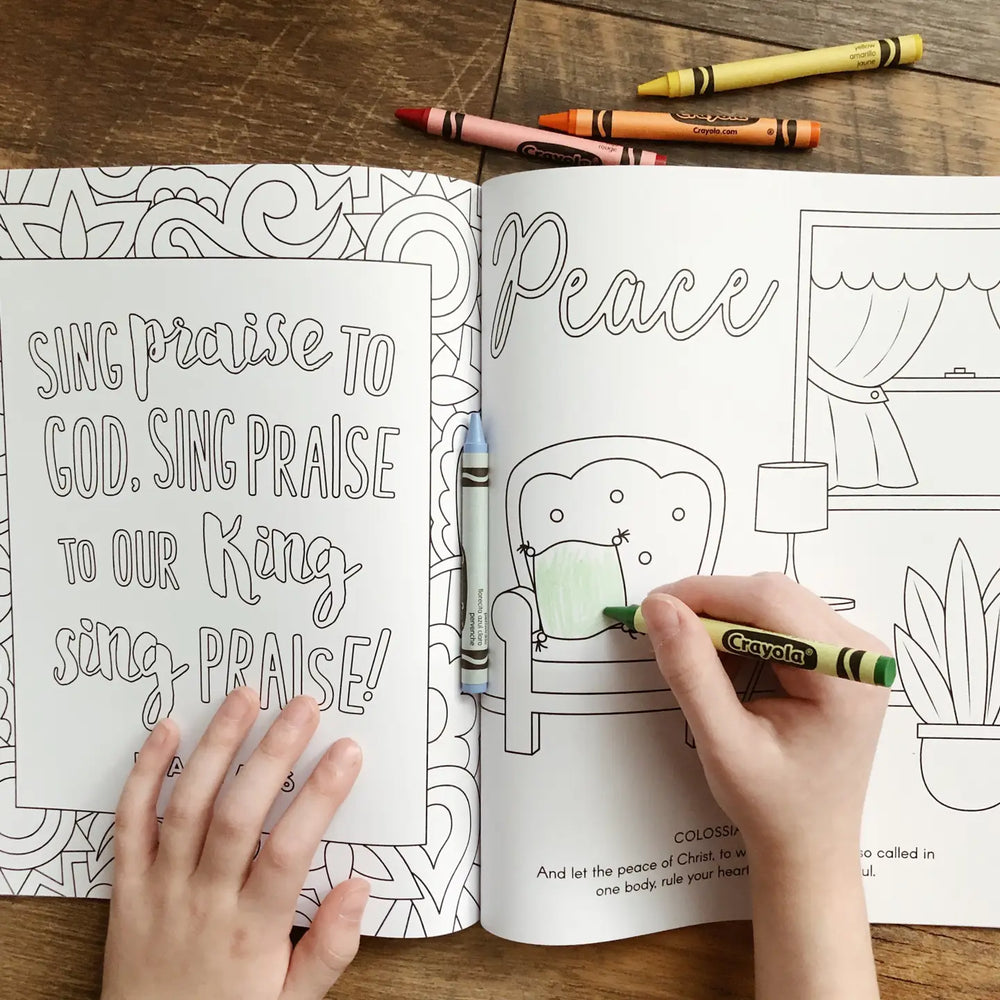 SING praise TO
GOD, SING PRAISE
TO OUR King
sing PRAISE!
Peace
And let the peace of Christ, to so called in
one body, rule your
Crayola
Crayola
Crayola.com
yellow
amarillo
jaune
rouge
Crayola
pervenche